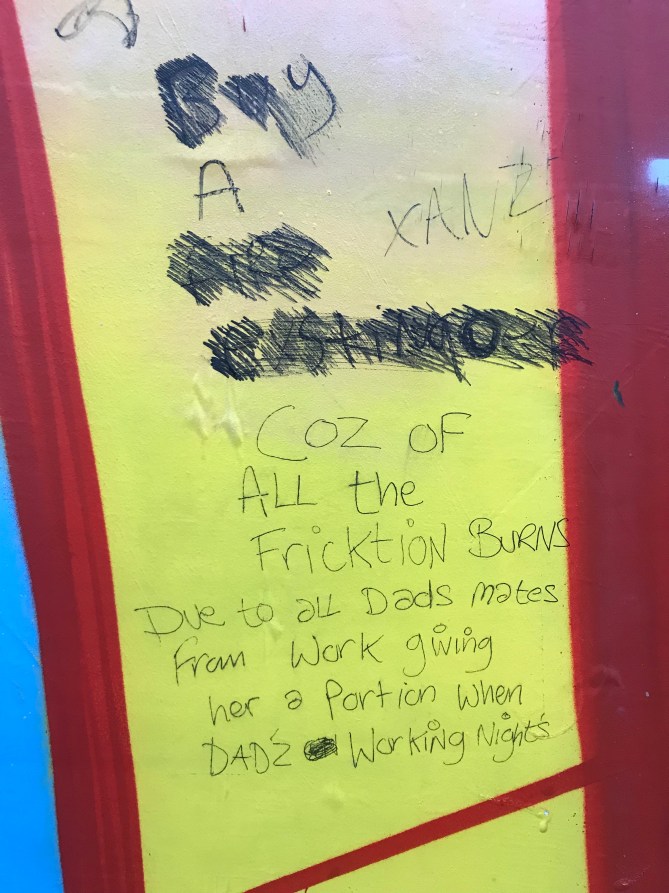 Buy
A
XANZ
COZ OF
ALL the
FRICKTION BURNS
DUE to all Dads mates
From Work giving
her a Portion when
DAD'Z Working Night's